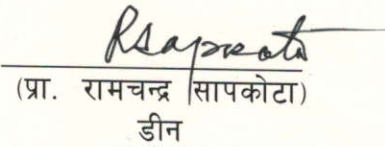 RSapkota
(प्रा. रामचन्द्र सापकोटा)
डीन